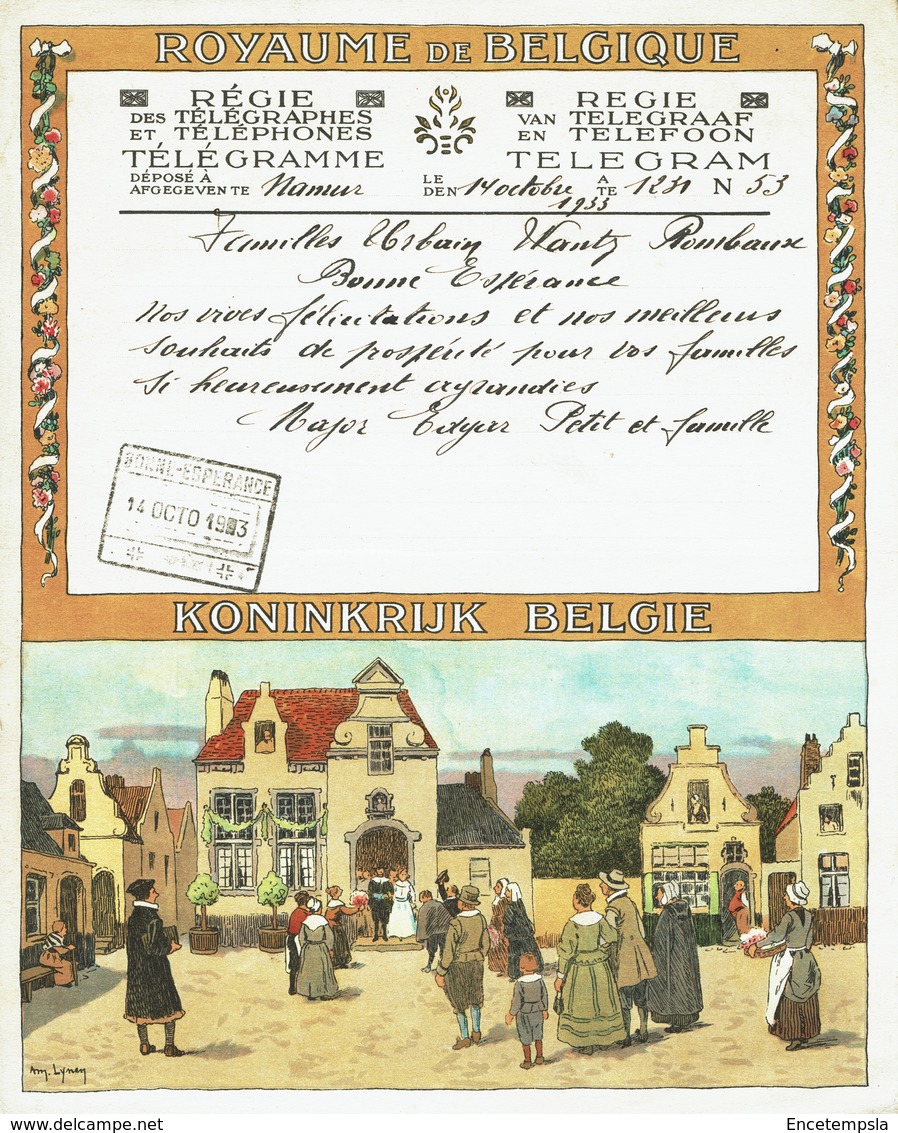 ROYAUME DE BELGIQUE
RÉGIE
DES TÉLÉGRAPHES
ET TÉLÉPHONES
TÉLÉGRAMME
REGIE
VAN TELEGRAAF
EN TELEFOON
TELEGRAM
DÉPOSÉ À
AFGEGEVEN TE Namur LE
DEN 14 octobre A
TE 1231 N 53
1933
Familles Urbain Wantz Rombaux
Bonne Espérance
Nos vives félicitations et nos meilleurs
souhaits de prospérité pour vos familles
si heureusement agrandies
Major Edgar Petit et famille
BONNE-ESPERANCE
14 OCTO 1933
KONINKRIJK BELGIE
Am. Lynen
delcampe.net
Encetempsla